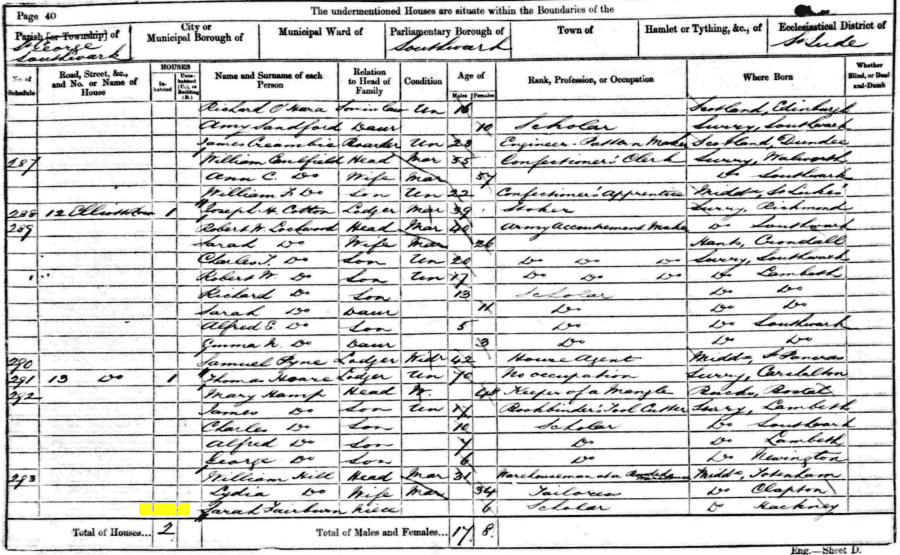 Page 40
The undermentioned Houses are situate within the Boundaries of the
Parish [or Township] of St George Southwark
City or Municipal Borough of
Municipal Ward of
Parliamentary Borough of Southwark
Town of
Hamlet or Tything, &c., of
Ecclesiastical District of St Jude
No. of Schedule
Road, Street, &c., and No. or Name of House
HOUSES
Inhabited
Uninhabited (U.), or Building (B.)
Name and Surname of each Person
Relation to Head of Family
Condition
Age of
Males
Females
Rank, Profession, or Occupation
Where Born
Whether Blind, or Deaf-and-Dumb
Richard O'Hara Son in Law Un 16 Scotland, Edinburgh
Amy Sandford Daur 10 Scholar Surry, Southwark
James Boarder Un 23 Engineer Pattern Maker Scotland Dundee
287 William Caulfield Head Mar 55 Confectioner's Clerk Surry, Walworth
Ann C. Do Wife Mar 57 Do Southwark
William F. Do Son Un 22 Confectioner's Apprentice Middx St Lukes
288 12 1 Joseph H. Cotton Lodger Mar 39 Stoker Surry, Richmond
289 Robert W. Lockwood Head Mar 40 Army Accoutrement Maker Do Southwark
Sarah Do Wife Mar 26 Hants, Crondall
Charles T. Do Son Un 20 Do Do Do Surry, Southwark
Robert W. Do Son Un 17 Do Do Do Do Lambeth
Richard Do Son 13 Scholar Do Do
Sarah Do Daur 11 Do Do Do
Alfred E. Do Son 5 Do Do Southwark
Emma N. Do Daur 3 Do Do Do
290 Samuel Pyne Lodger Widr 42 House Agent Middx, St Pancras
291 13 Do 1 Thomas Hoare Lodger Un 70 No occupation Surry, Carshalton
292 Mary Hamp Head W. 48 Keeper of a Mangle
James Do Son Un 17 Bookbinder's Tool Cutter Surry, Lambeth
Charles Do Son 10 Scholar Do Southwark
Alfred Do Son 7 Do Do Lambeth
George Do Son 6 Do Do Newington
293 William Hill Head Mar 31 Warehouseman Middx, Totenham
Lydia Do Wife Mar 34 Tailoress Do Clapton
Sarah Fairburn Niece 6 Scholar Do Hackney
Total of Houses... 2
Total of Males and Females... 17 8
Eng.—Sheet D.